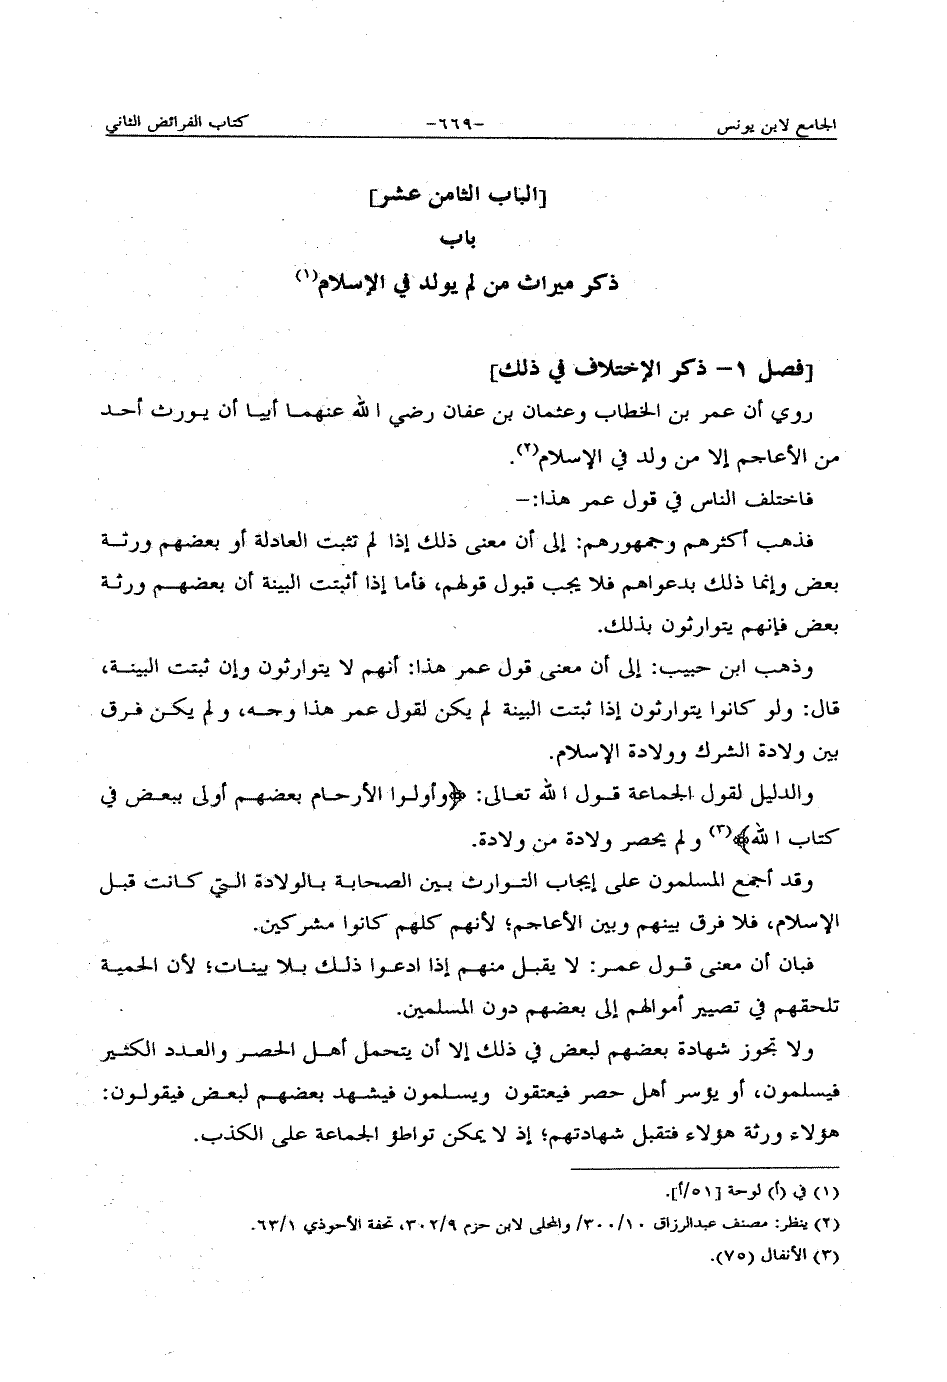 الجامع لابن يونس -٦٦٩- كتاب الفرائض الثاني
[الباب الثامن عشر]
باب
ذكر ميراث من لم يولد في الإسلام(١)
[فصل ١- ذكر الإختلاف في ذلك]
روي أن عمر بن الخطاب وعثمان بن عفان رضي الله عنهما أبيا أن يورث أحد
من الأعاجم إلا من ولد في الإسلام(٢).
فاختلف الناس في قول عمر هذا:-
فذهب أكثرهم وجمهورهم: إلى أن معنى ذلك إذا لم تثبت العادلة أو بعضهم ورثة
بعض وإنما ذلك بدعواهم فلا يجب قبول قولهم، فأما إذا أثبتت البينة أن بعضهم ورثة
بعض فإنهم يتوارثون بذلك.
وذهب ابن حبيب: إلى أن معنى قول عمر هذا: أنهم لا يتوارثون وإن ثبتت البينة،
قال: ولو كانوا يتوارثون إذا ثبتت البينة لم يكن لقول عمر هذا وجه، ولم يكن فرق
بين ولادة الشرك وولادة الإسلام.
والدليل لقول الجماعة قول الله تعالى: ﴿وأولوا الأرحام بعضهم أولى ببعض في
كتاب الله﴾(٣) ولم يحصر ولادة من ولادة.
وقد أجمع المسلمون على إيجاب التوارث بين الصحابة بالولادة التي كانت قبل
الإسلام، فلا فرق بينهم وبين الأعاجم؛ لأنهم كلهم كانوا مشركين.
فبان أن معنى قول عمر: لا يقبل منهم إذا ادعوا ذلك بلا بينات؛ لأن الحمية
تلحقهم في تصيير أموالهم إلى بعضهم دون المسلمين.
ولا تجوز شهادة بعضهم لبعض في ذلك إلا أن يتحمل أهل الحصر والعدد الكثير
فيسلمون، أو يؤسر أهل حصر فيعتقون ويسلمون فيشهد بعضهم لبعض فيقولون:
هؤلاء ورثة هؤلاء فتقبل شهادتهم؛ إذ لا يمكن تواطؤ الجماعة على الكذب.
(١) في (أ) لوحة [٥١/أ].
(٢) ينظر: مصنف عبدالرزاق ٣٠٠/١٠/ والمحلى لابن حزم ٣٠٢/٩، تحفة الأحوذي ٦٣/١.
(٣) الأنفال (٧٥).